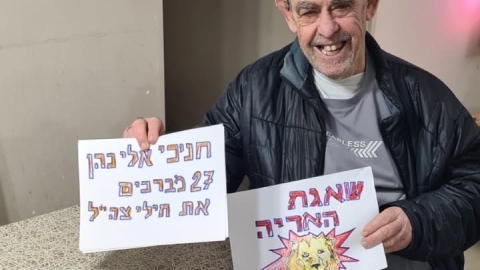 חניכי אלי כהן
27 מברכים
את חילי צה"ל
שאגת
האריה